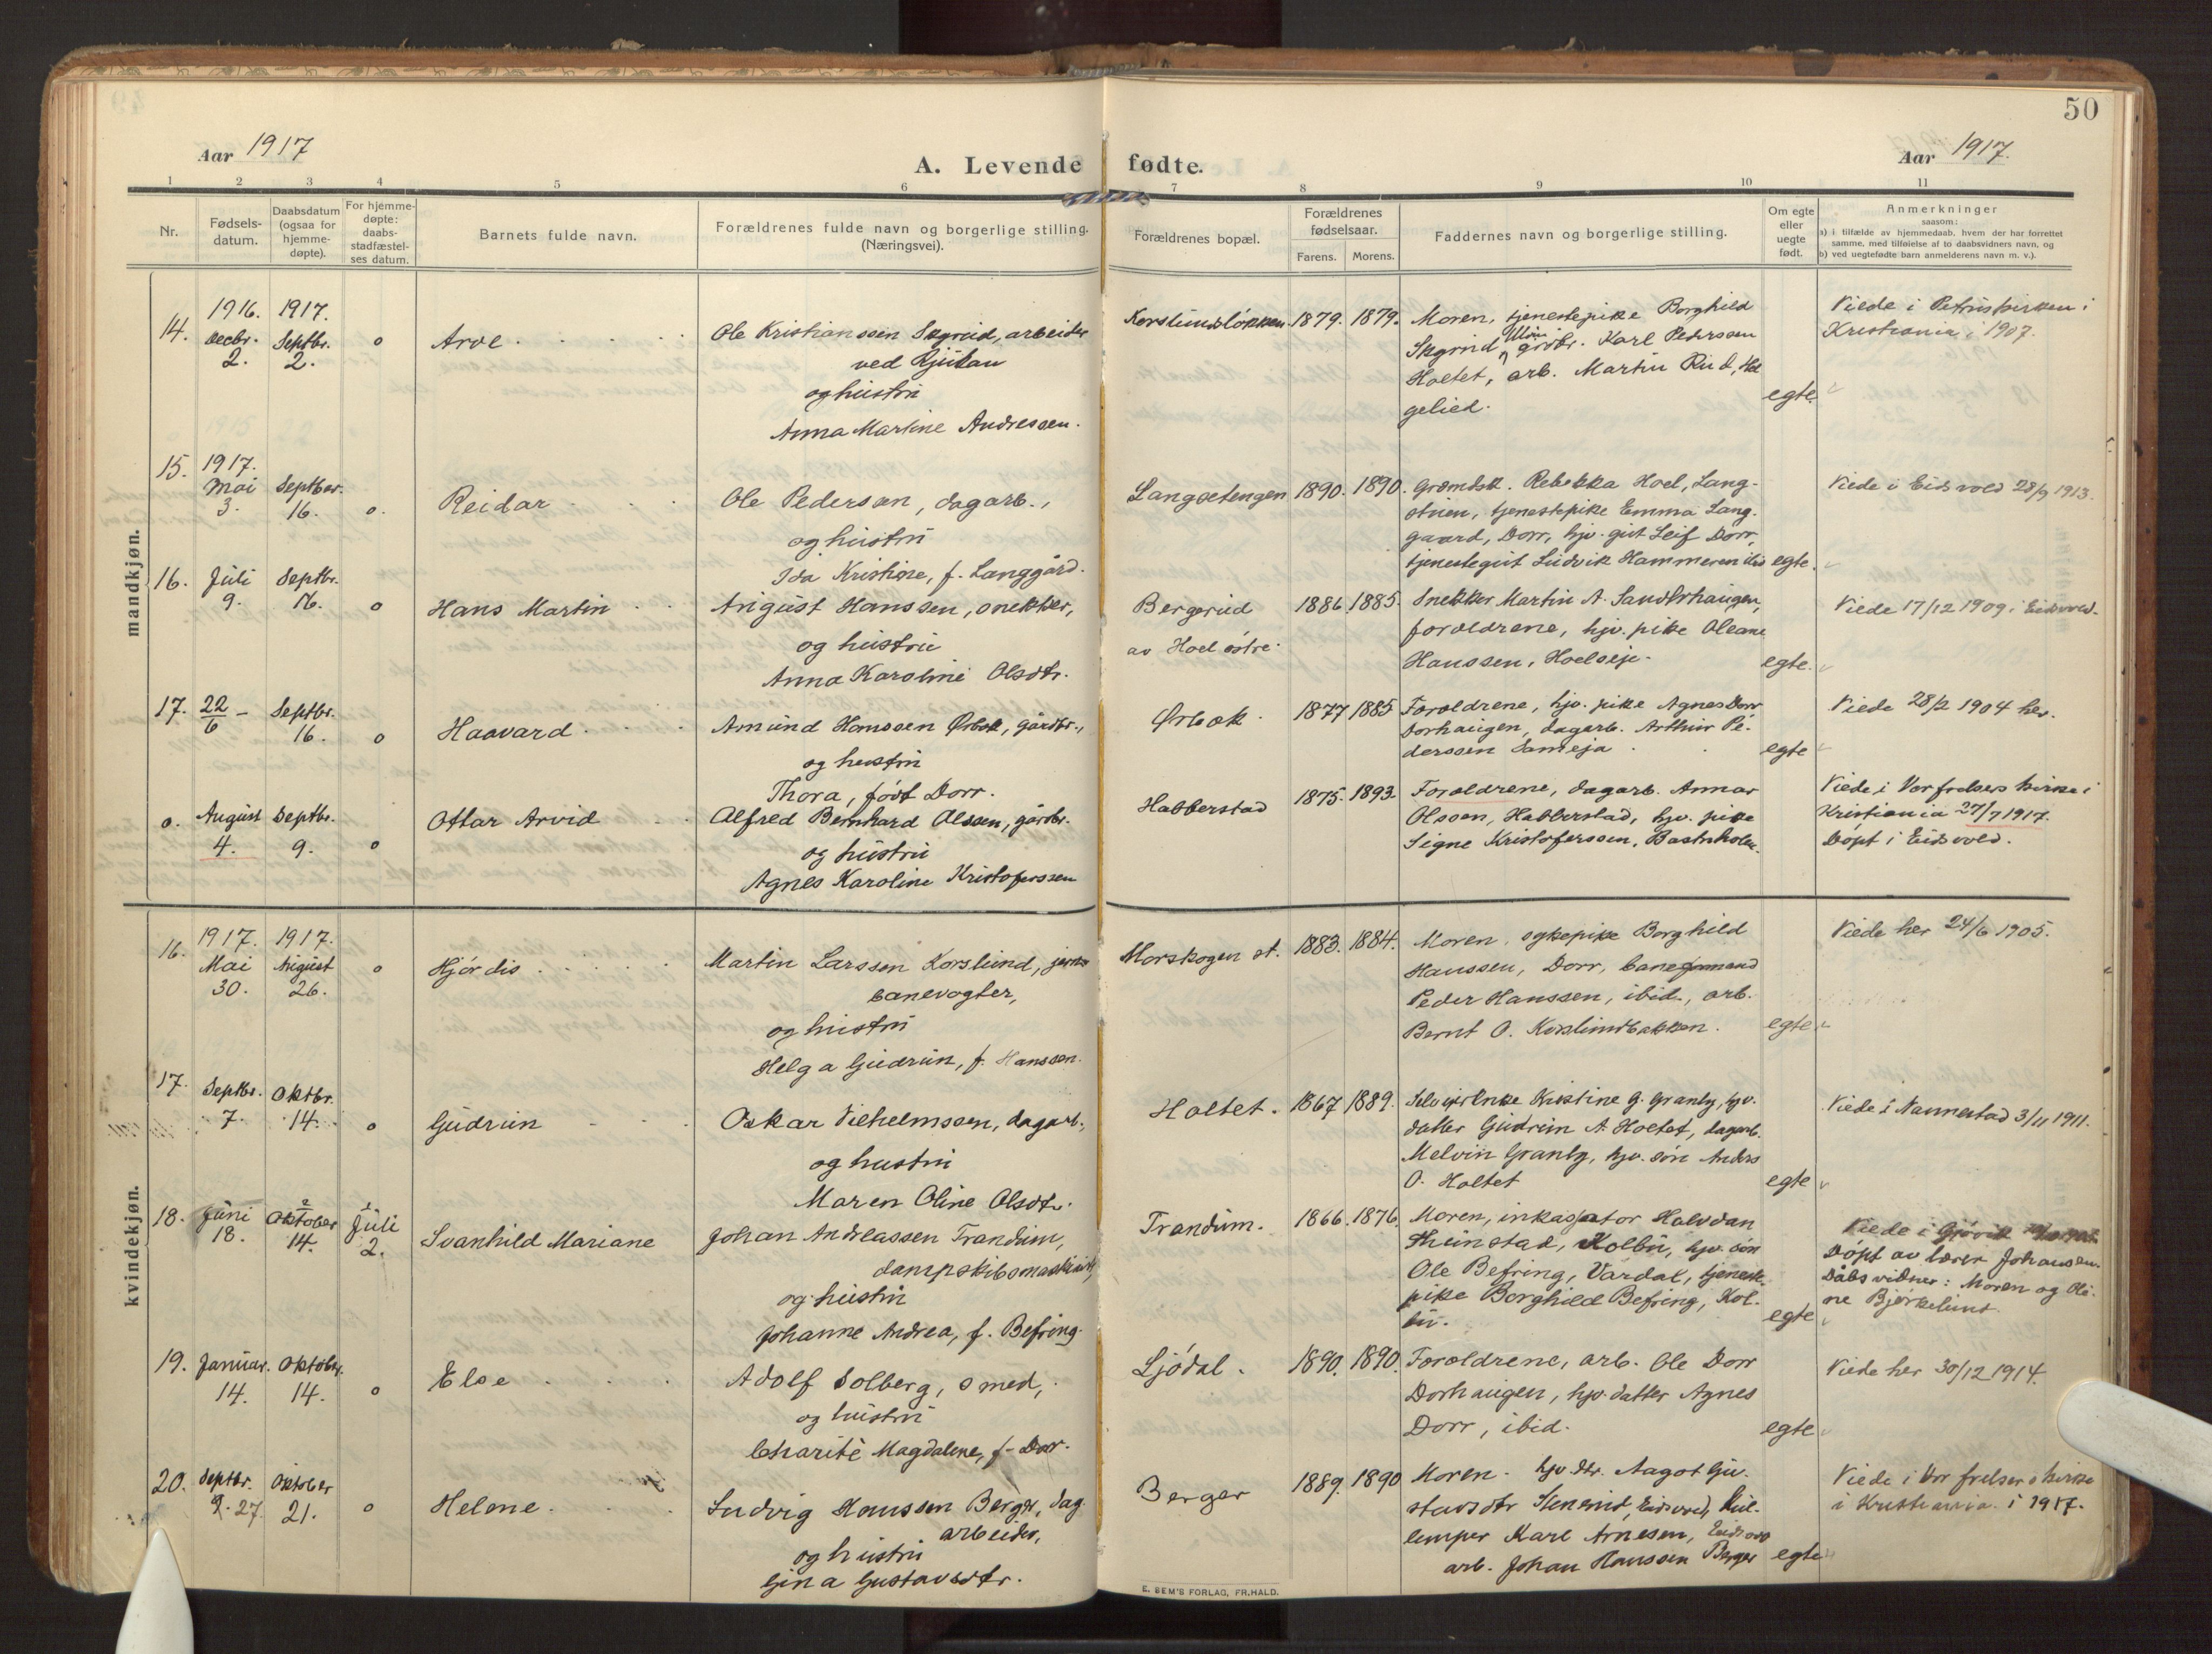 50
Aar 1917
A. Levende fødte.
Aar 1917.
1 2 3 4 5 6 7 8 9 10 11
Nr.
Fødsels-
datum.
Daabsdatum
(ogsaa for
hjemme-
døpte).
For hjemme-
døpte:
daabs-
stadfæstel-
ses datum.
Barnets fulde navn.
Forældrenes fulde navn og borgerlige stilling.
(Næringsvei).
Forældrenes bopæl.
Forældrenes
fødselsaar.
Farens. Morens.
Faddernes navn og borgerlige stilling.
Om egte
eller
uegte
født.
Anmerkninger
saasom:
a) i tilfælde av hjemmedaab, hvem der har forrettet
samme, med tilføielse af to daabsvidners navn, og
b) ved uegtefødte barn anmelderens navn m. v.).
mandkjøn.
14.
1916.
Decbr.
2.
1917.
Septbr.
2.
o
Arve
Ole Kristianssen Skgrud, arbeider
ved Rjukan
og hustru
Anna Martine Andressen.
Korslundløkken
1879. 1879.
Moren, tjenestepike Borghild
gårdbr. Karl Pederssen
Holtet, arb. Martin Rud, Hel
gelied.
egte.
Viede i Petruskirken i
Kristiania i 1907.
15.
1917.
Mai
3.
Septber.
16.
o.
Reidar
Ole Pederssen, dagarb.,
og hustru
Ida Kristine, f. Langgård.
Langsetengen
1890. 1890.
Rebekka Hoel, Lang-
stuen, tjenestepike Emma Lang-
gaard, Dorr, hjv. gut Leif Dorr,
tjenestegut Ludvik Hammeren ibid
egte.
Viede i Eidsvold 28/9 1913.
16.
Juli
9.
Septbr.
16.
o
Hans Martin
August Hanssen, snekker,
og hustru
Anna Karoline Olsdtr.
Bergerud
av Hoel østre.
1886. 1885.
Snekker Martin A. Sandbrhaugen,
foræeldrene, hjv. pike Oleane
Hanssen, Hoelseje.
egte.
Viede 17/12 1909 i Eidsvold.
17.
22/6 –
Septbr.
16.
o
Haavard
Amund Hanssen Ørbæk, gårdbr.,
og hustru
Thora, født Dorr.
Ørbæk.
1877 1885
Forældrene, hjv. pike Agnes Dorr
Dorhaugen, dagarb. Arthur Pe-
derssen Sameja
egte
Viede 28/2 1904 her.
o.
August
4.
Septbr.
9.
o
Ottar Arvid
Alfred Bernhard Olssen, gårdbr.
og hustru
Agnes Karoline Kristoferssen
Habberstad
1875. 1893.
Forældrene, dagarb. Annar
Olssen, Habberstad, hjv. pike
Signe Kristoferssen, Bastuholen.
Viede i Vor frelsers kirke i
Kristiania 27/7 1917.
Døpt i Eidsvold.
kvindekjøn.
16.
1917.
Mai
30.
1917.
August
26.
o
Hjørdis
Martin Larssen Korslund, jern-
banevogter,
og hustru
Helga Gudrun, f. Hanssen.
Morskogen st.
1883. 1884.
Moren, sykepike Borghild
Hanssen, Dorr, baneformand
Peder Hanssen, ibid., arb.
Bernt O. Korslundbakken.
egte
Viede her 24/6 1905.
17.
Septbr.
7.
Oktbr.
14.
o
Gudrun
Oskar Vilhelmssen, dagarb.,
og hustru
Maren Oline Olsdtr.
Holtet.
1867 1889.
Kristine G. Granby, hjv.
datter Gudrun A. Holtet, dagarb.
Melvin Granby, hjv. søn Anders
O. Holtet
egte
Viede i Nannestad 3/11 1911.
18.
Juni
18.
2
Oktober
14.
Juli
2.
Svanhild Mariane
Johan Andreassen Trandum,
dampskibsmaskinist,
og hustru
Johanne Andrea, f. Befring.
Trandum.
1866. 1876.
Moren, inkassator Halvdan
Theinstad, Kolbu, hjv. søn
Ole Befring, Vardal, tjeneste-
pike Borghild Befring, Kol-
bu.
egte
Viede i Gjøvik
Døpt av lærer Johansen.
Dåbsvidner: Moren og Oli-
ne Bjørkelund.
19.
Januar.
14.
Oktober.
14.
o
Else
Adolf Solberg, smed,
og hustru
Charité Magdalene, f. Dorr.
Ljødal.
1890. 1890.
Forældrene, arb. Ole Dorr
Dorhaugen, hjv. datter Agnes
Dorr, ibid.
egte
Viede her 30/12 1914.
20.
Septbr.
27.
Oktober
21.
o
Helene
Ludvig Hanssen Berger, dag-
arbeider,
og hustru
Gina Gustavsdtr.
Berger
1889. 1890
Moren. hjv. dtr. Aagot Gu-
stavsdtr Eidsvold, kul-
lemper Karl Arnesen, Eidsvold
arb. Johan Hanssen Berger
egte
Viede i Vor frelsers kirke
i Kristiania i 1917.
E. SEM'S FORLAG, FR.HALD.